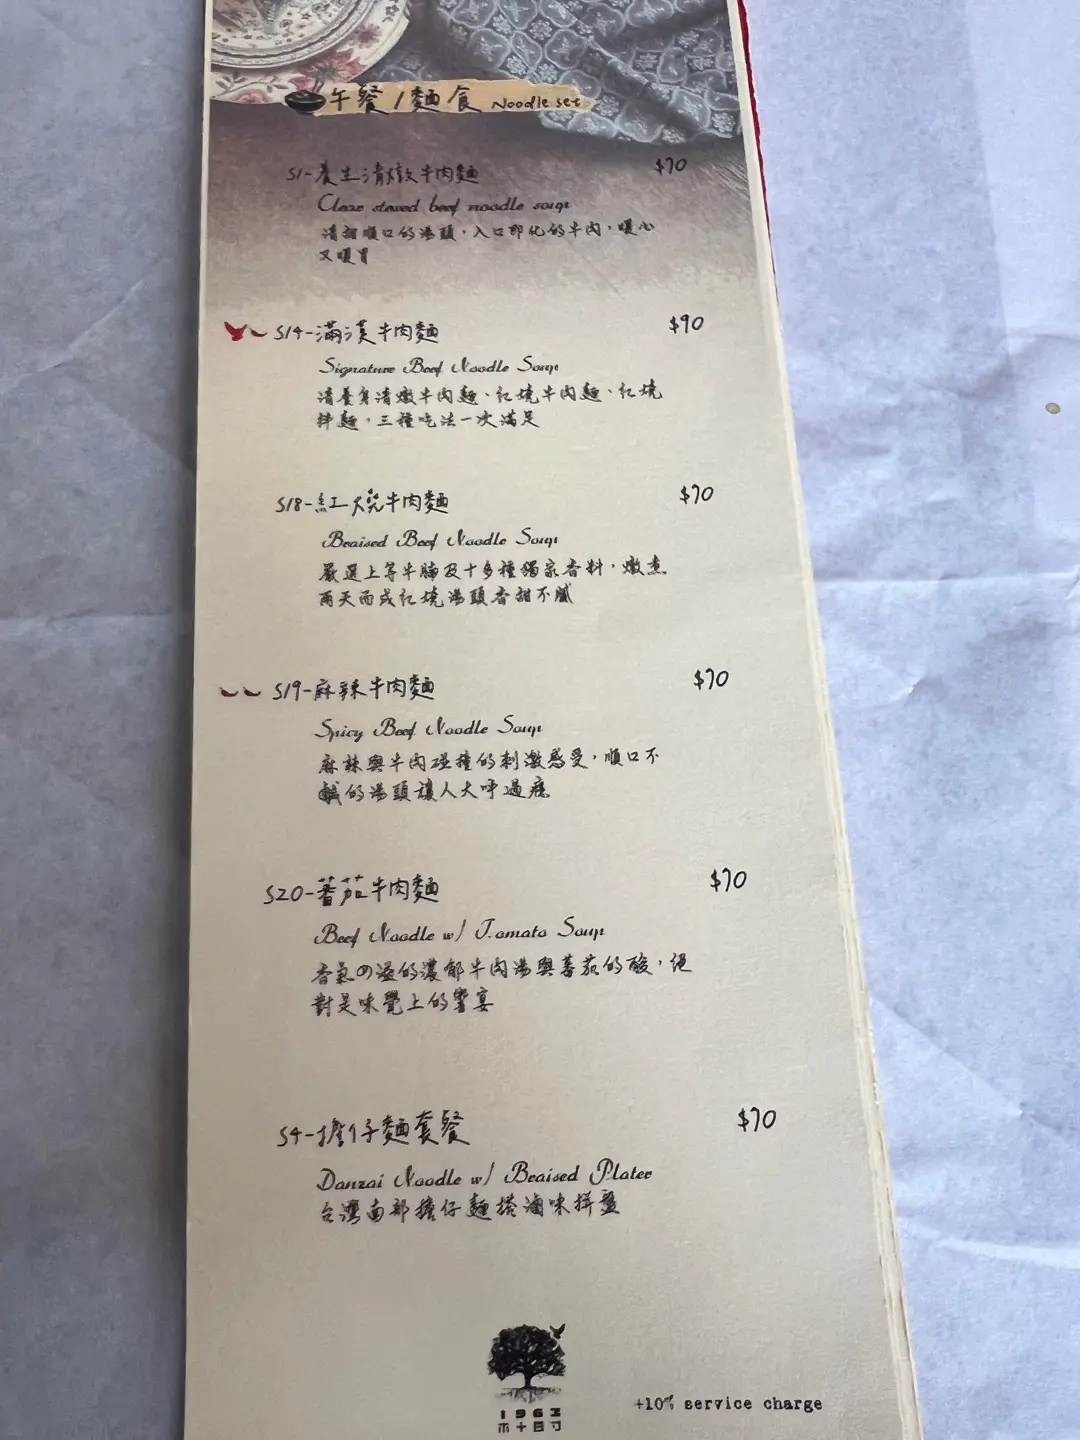 午餐/麵食 Noodle set
S1-養生清燉牛肉麵 $70
Clear stewed beef noodle soup
清甜順口的湯頭，入口即化的牛肉，暖心
又暖胃
S14-滿漢牛肉麵 $90
Signature Beef Noodle Soup
清養身清燉牛肉麵、紅燒牛肉麵、紅燒
拌麵，三種吃法一次滿足
S18-紅燒牛肉麵 $70
Braised Beef Noodle Soup
嚴選上等牛腩及十多種獨家香料，燉煮
兩天而成紅燒湯頭香甜不膩
S19-麻辣牛肉麵 $70
Spicy Beef Noodle Soup
麻辣與牛肉碰撞的刺激感受，順口不
鹹的湯頭讓人大呼過癮
S20-蕃茄牛肉麵 $70
Beef Noodle w/ Tomato Soup
香氣四溢的濃郁牛肉湯與蕃茄的酸，絕
對是味覺上的饗宴
S4-擔仔麵套餐 $70
Danzai Noodle w/ Braised Plater
台灣南部擔仔麵搭滷味拼盤
+10% service charge
1962